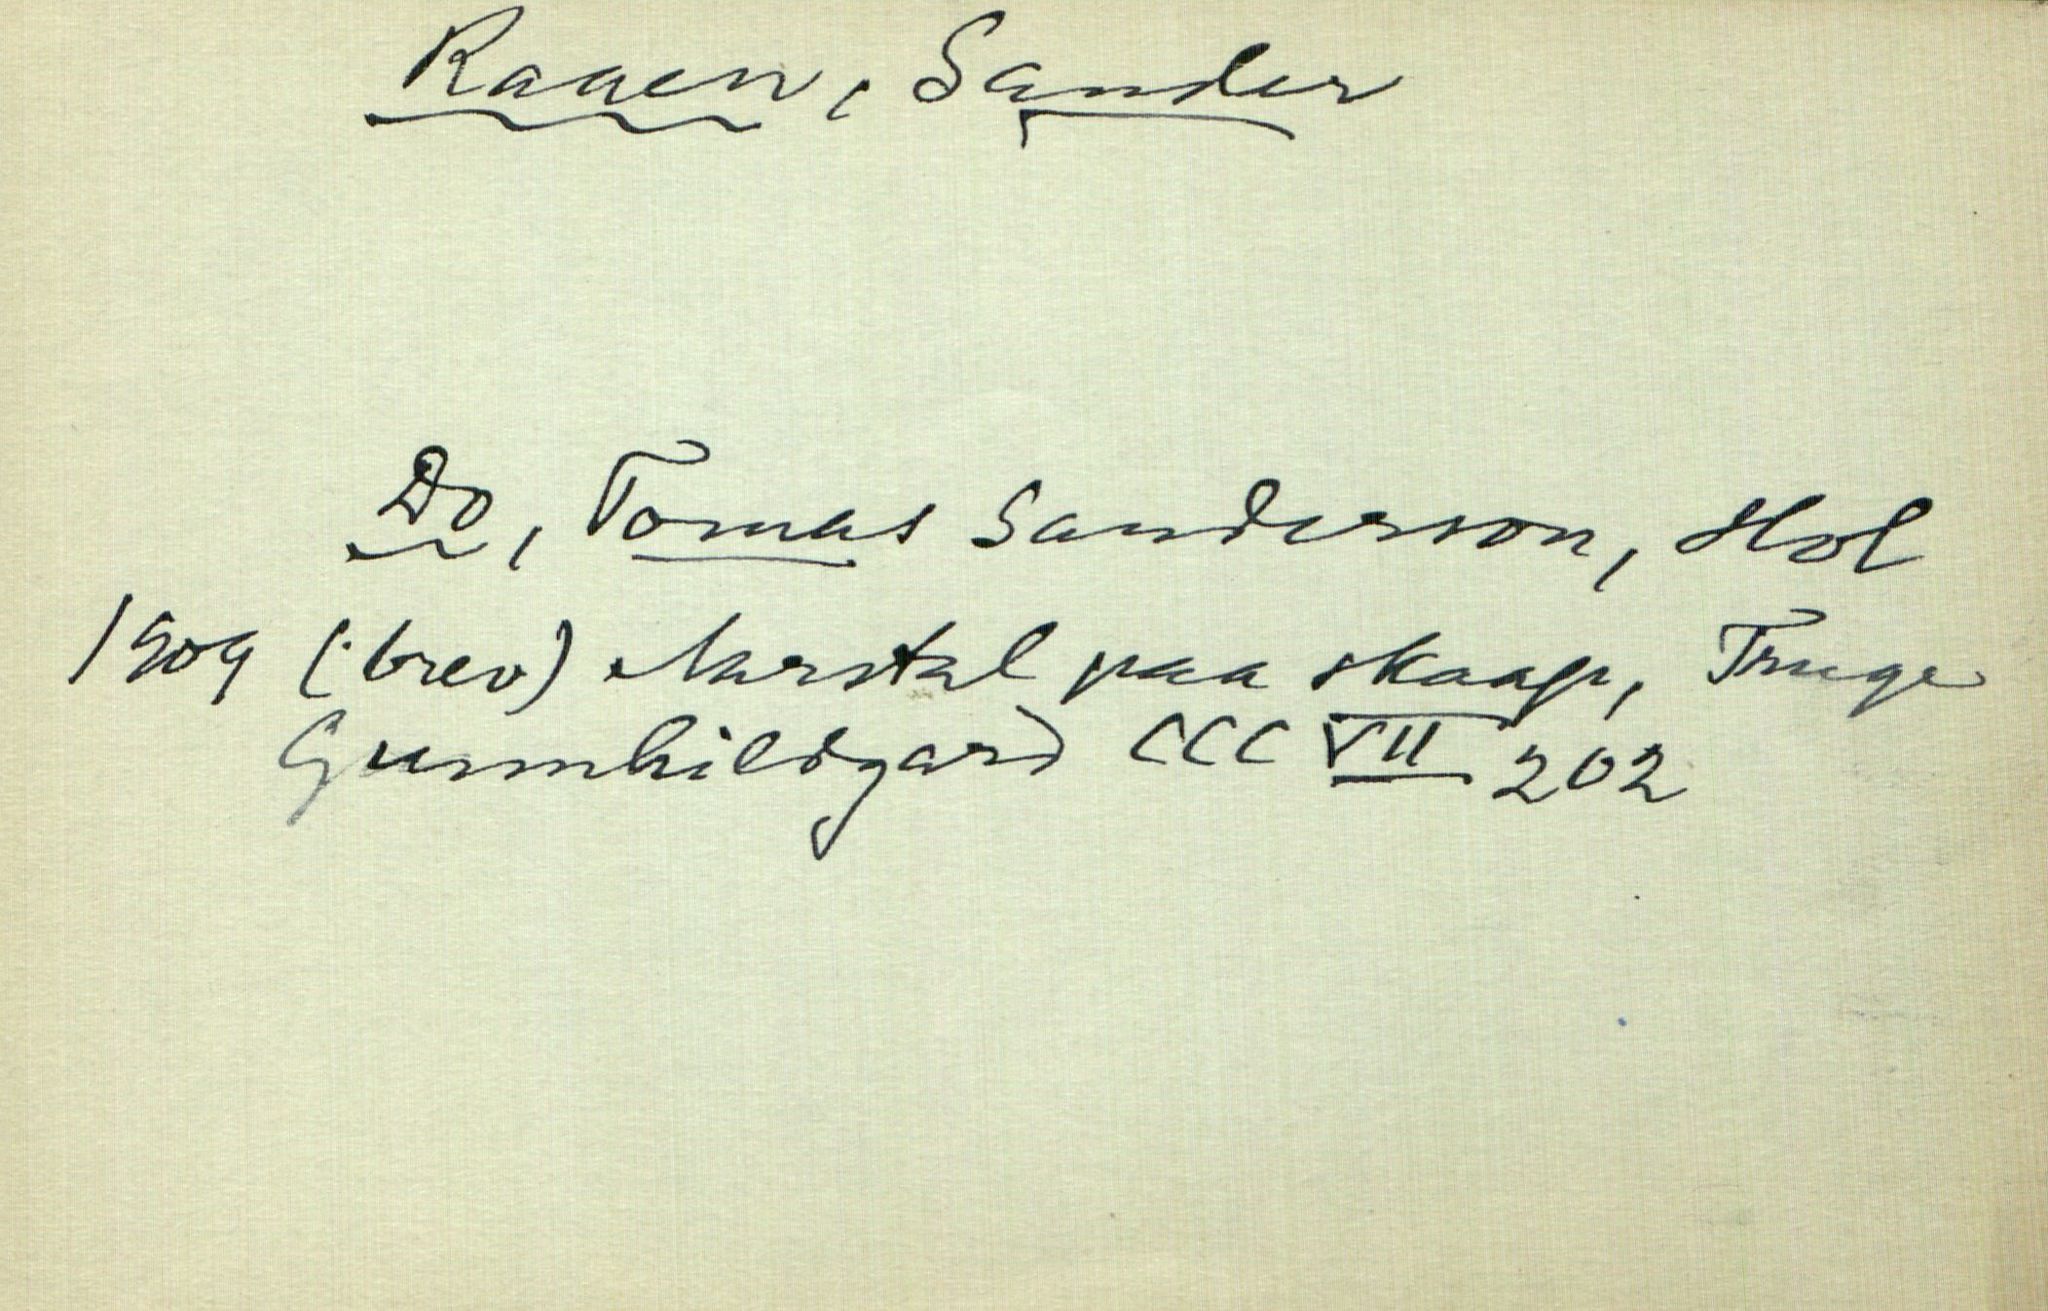 Raaen, Sander
Do, Tomas Sanderson, Hol
1909 (brev) Aarstal paa skaap, Truge
Gunnhildgard CCCVII 202